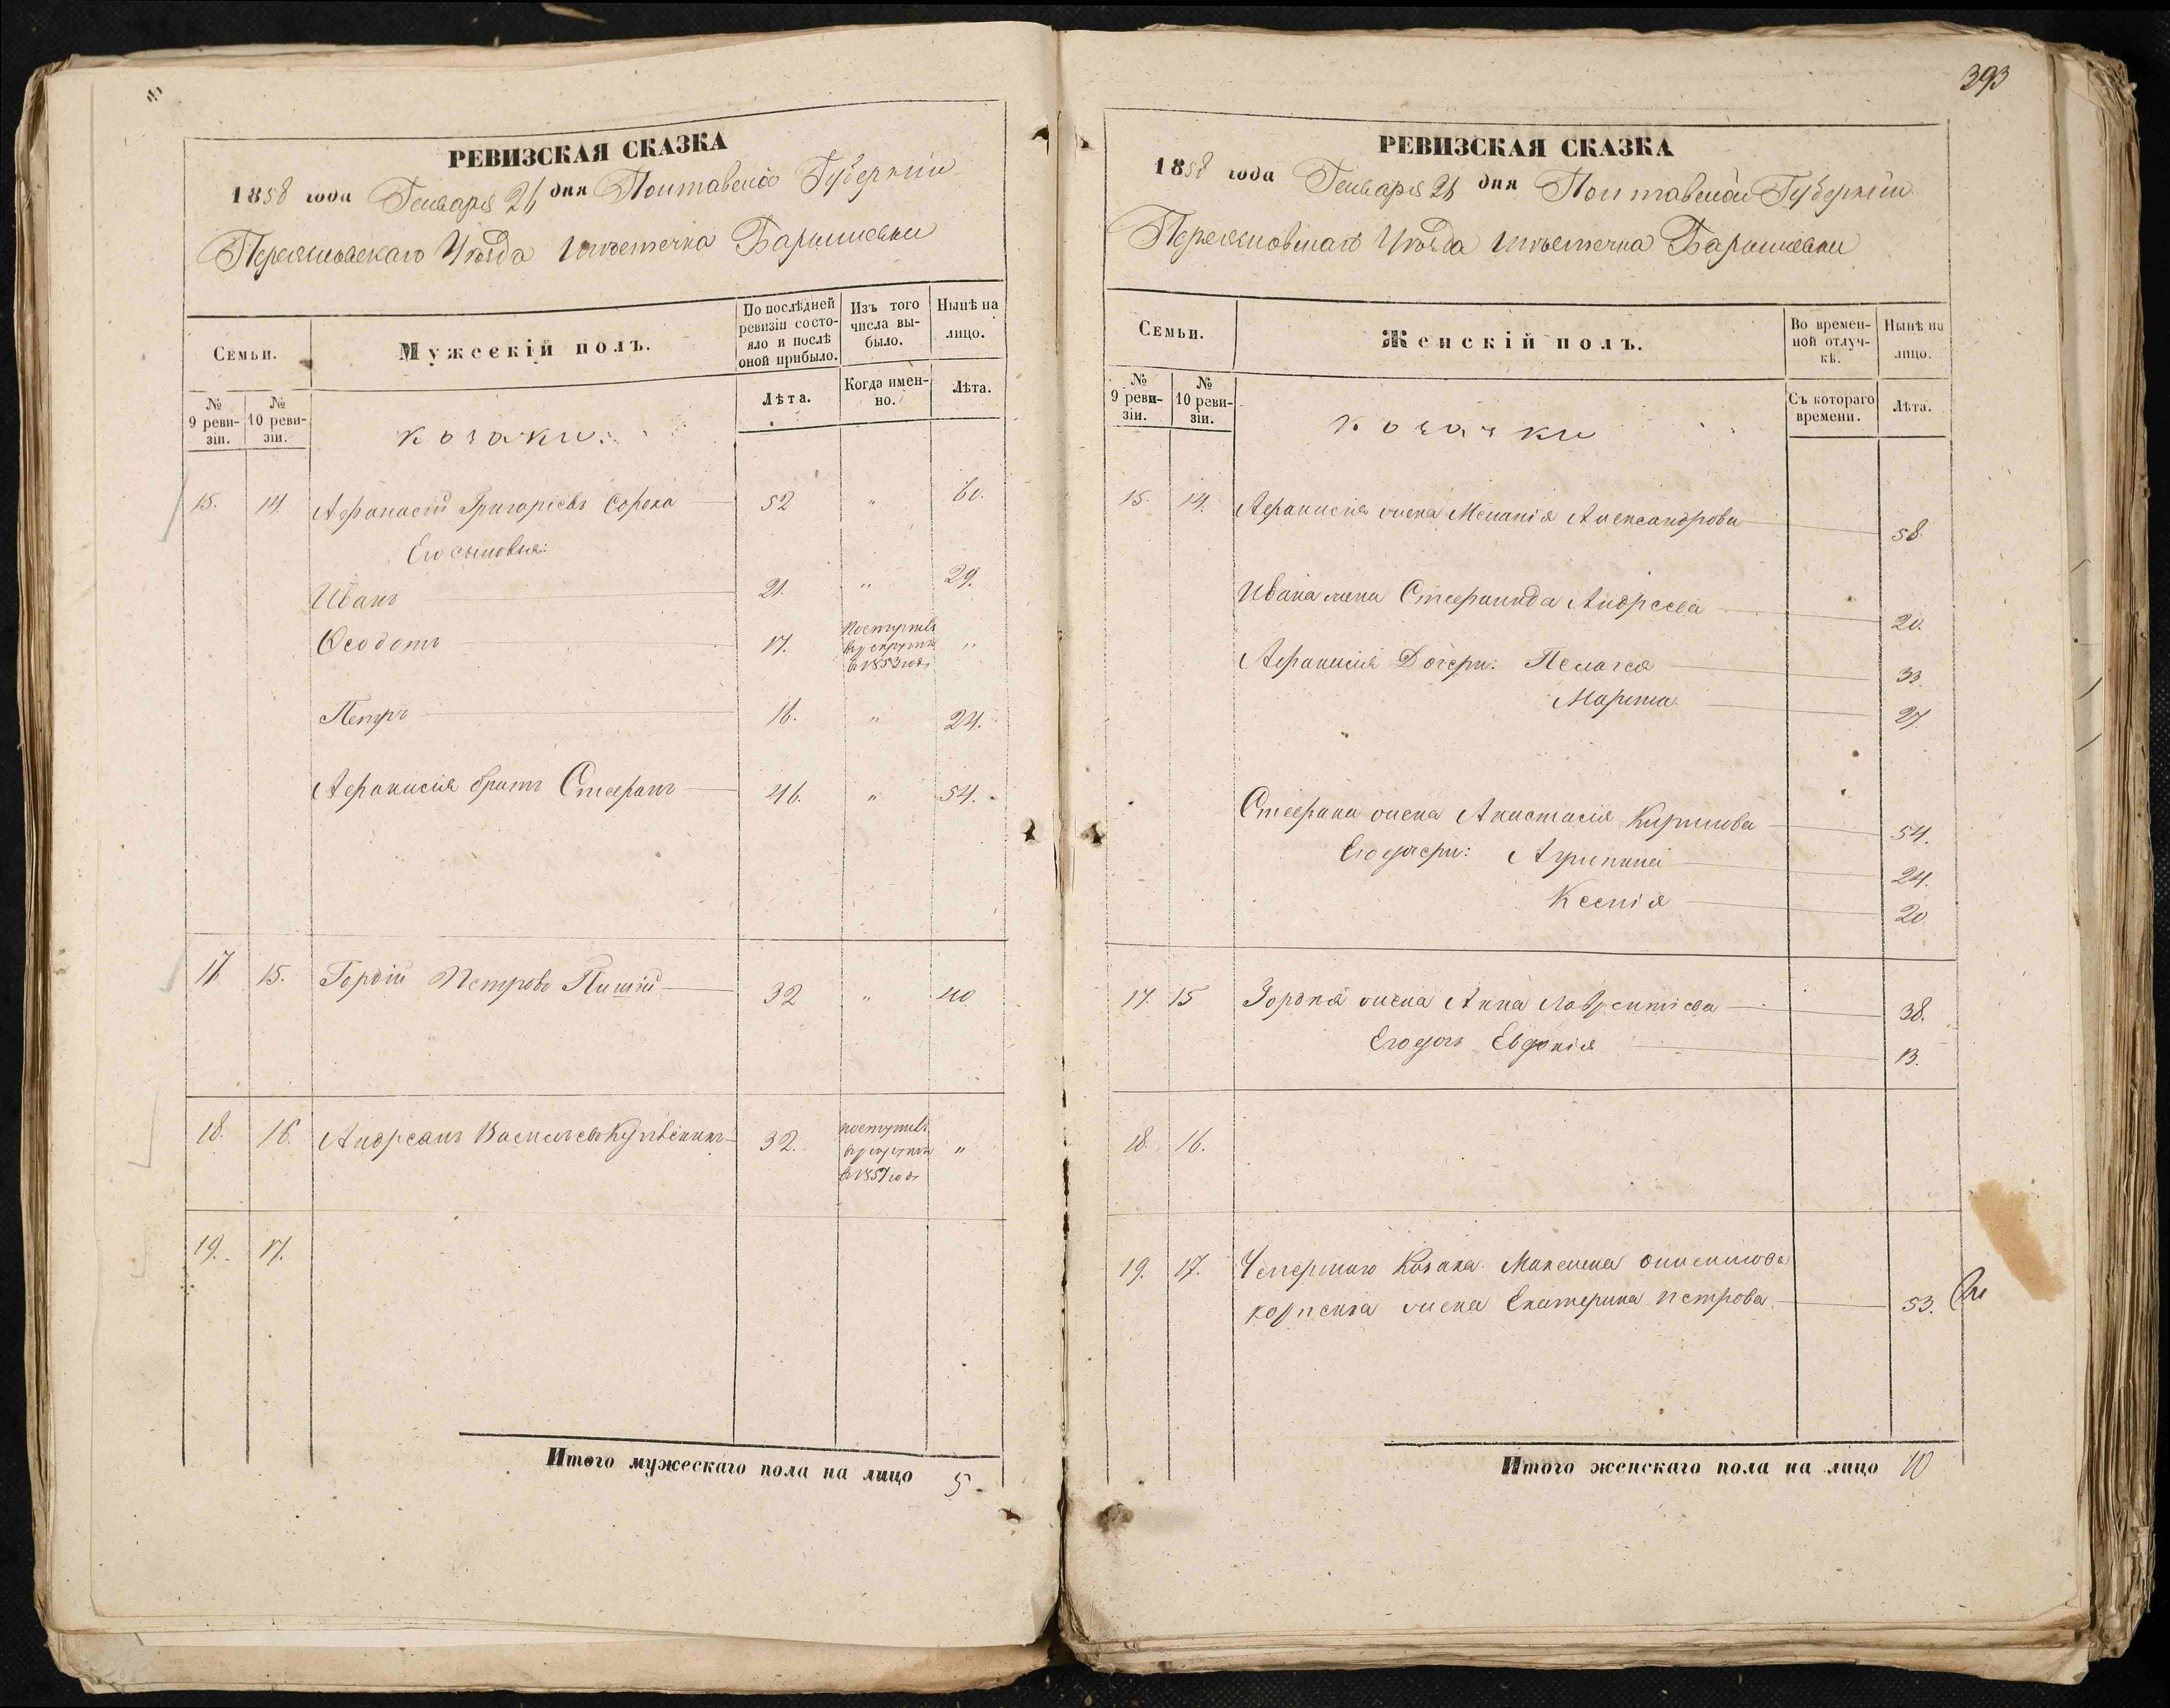 РЕВИЗСКАЯ СКАЗКА
1858 года Генваря 21 дня Полтавской Губерніи
Переяславскаго Уѣзда мѣстечка Барышевки
Семьи.
Мужескій полъ.
По послѣдней ревизіи состояло и послѣ оной прибыло.
Изъ того числа выбыло.
Нынѣ на лицо.
№ 9 ревизіи.
№ 10 ревизіи.
козаки:
Лѣта.
Когда именно.
Лѣта.
15. 14. Афанасій Григоріевъ Сорока 52 " 60.
Его сыновья:
Иванъ 21. " 29.
Ѳеодотъ 17. поступилъ в рекруты в 1853 годѣ "
Петръ 16. " 24.
Афанасія братъ Стефанъ 46. " 54.
17 15. Гордій Петровъ 32 " 40
18. 16. Андреанъ Васильевъ 32. поступилъ в рекруты в 1857 годѣ "
19. 17.
Итого мужескаго пола на лицо 5
393
РЕВИЗСКАЯ СКАЗКА
1858 года Генваря 21 дня Полтавской Губерніи
Переяславскаго Уѣзда мѣстечка Барышевки
Семьи.
Женскій полъ.
Во временной отлучкѣ.
Нынѣ на лицо.
№ 9 ревизіи.
№ 10 ревизіи.
козачки
Съ котораго времени.
Лѣта.
15. 14. Афанасія жена Меланія Александрова 58.
Ивана жена Стефанида Андреева 20.
Афанасія Дочери: Пелагея 33.
Марѳа 27.
Стефана жена Анастасія Кирилова 54.
Его дочери: Агрипина 24.
Ксенія 20.
17. 15 Гордія жена Анна Лаврентіева 38.
Его дочь Евдокія 13.
18. 16.
19. 17. Умершаго Козака Максима
жена Екатерина Петрова 53.
Итого женскаго пола на лицо 10